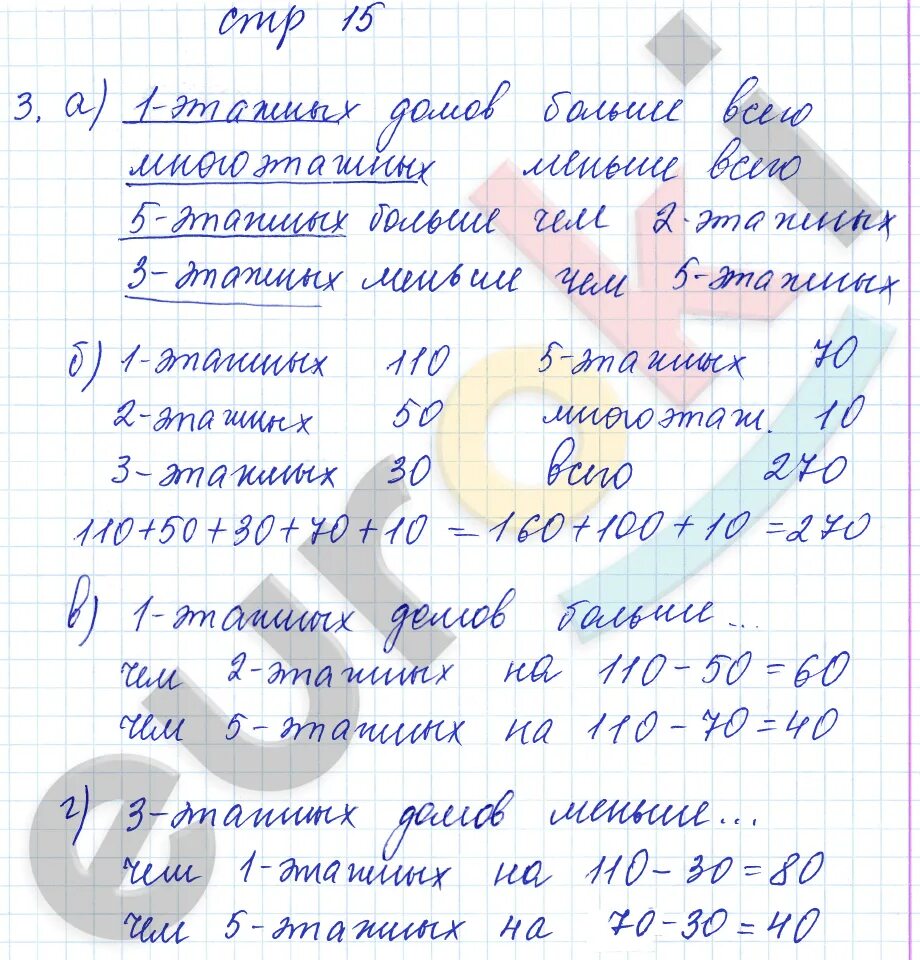 стр 15
3. а) 1-этажных домов больше всего
многоэтажных меньше всего
5-этажных больше чем 2-этажных
3-этажных меньше чем 5-этажных
б) 1-этажных 110 5-этажных 70
2-этажных 50 многоэтаж. 10
3-этажных 30 всего 270
110+50+30+70+10 = 160+100+10 = 270
в) 1-этажных домов больше...
чем 2-этажных на 110-50=60
чем 5-этажных на 110-70=40
г) 3-этажных домов меньше...
чем 1-этажных на 110-30=80
чем 5-этажных на 70-30=40
euroki